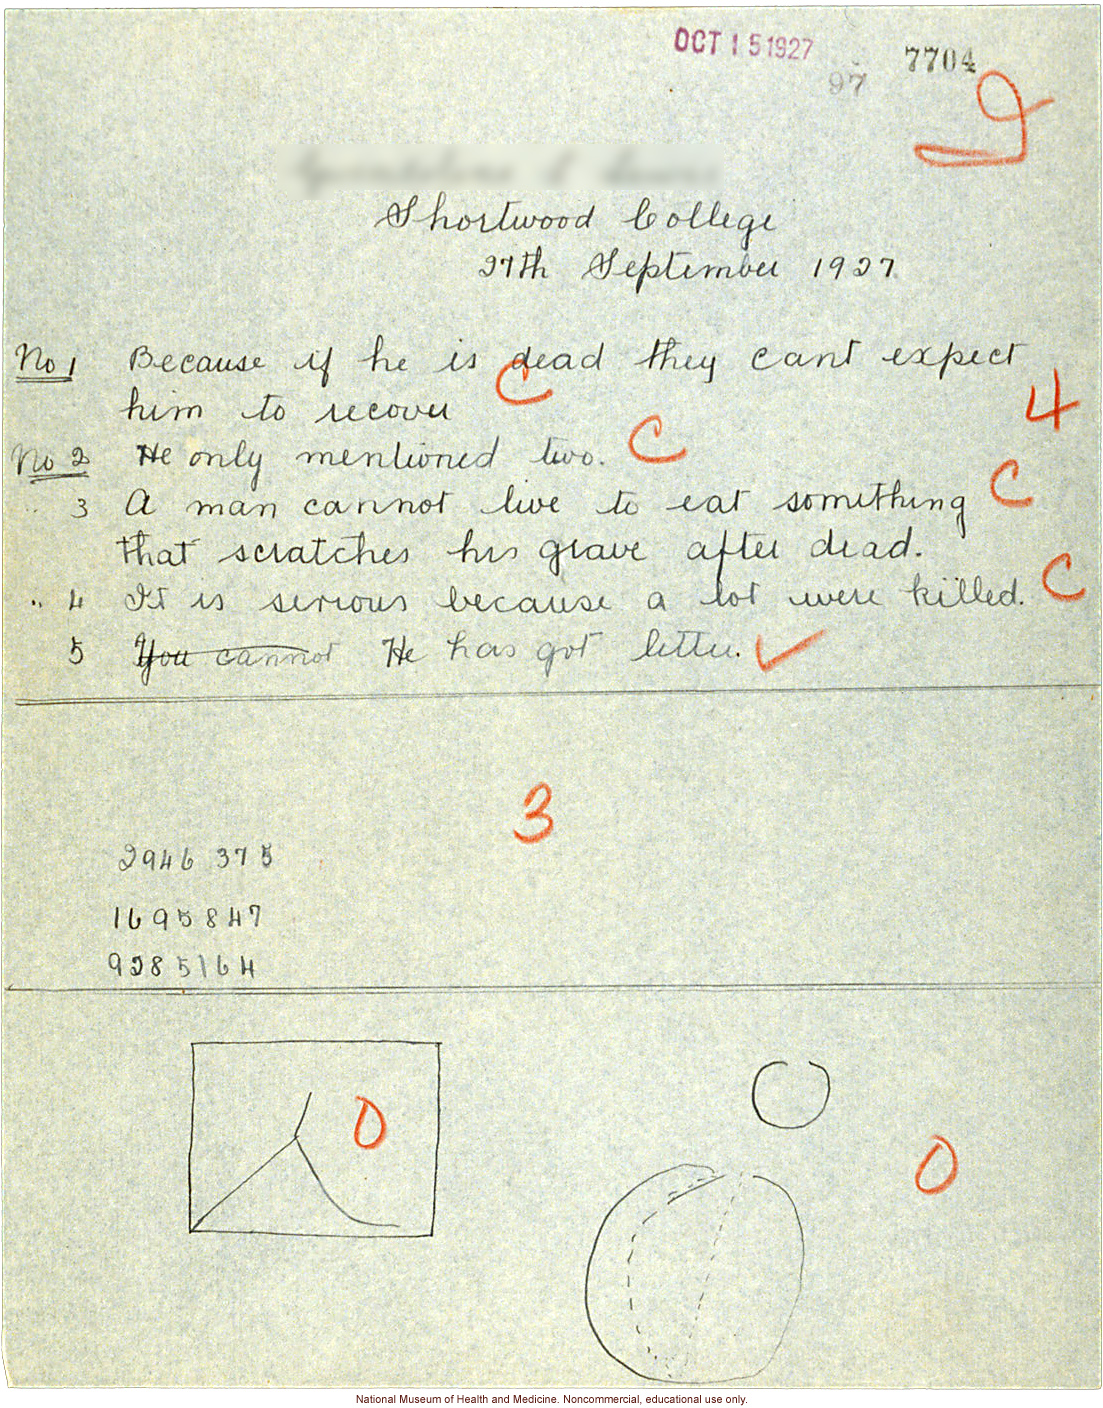 OCT 15 1927
7704
97
Shortwood College
27th September 1927.
No 1 Because if he is dead they cant expect
C
him to recover
4
No 2 He only mentioned two. C
" 3 A man cannot live to eat something C
that scratches his grave after dead.
" 4 It is serious because a lot were killed. C
5 You cannot He has got letter. ✓
3
2946 375
1695847
9285164
0
0
National Museum of Health and Medicine. Noncommercial, educational use only.